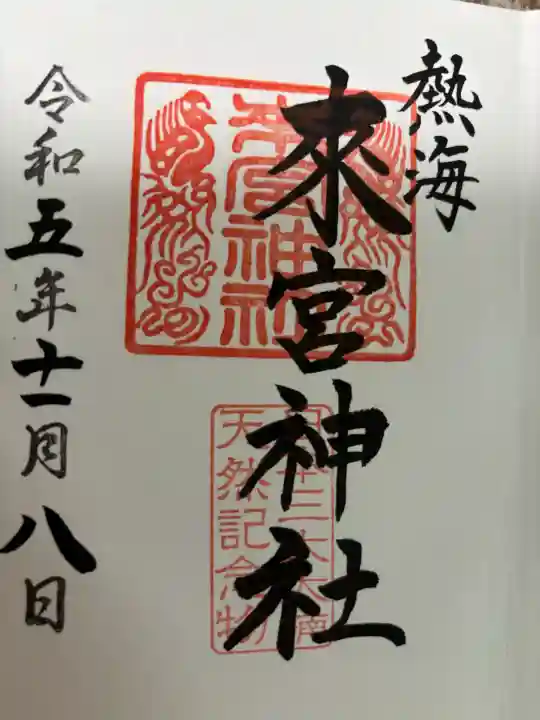 熱海
來宮神社
來宮神社
日本三大大楠
天然記念物
令和五年十一月八日